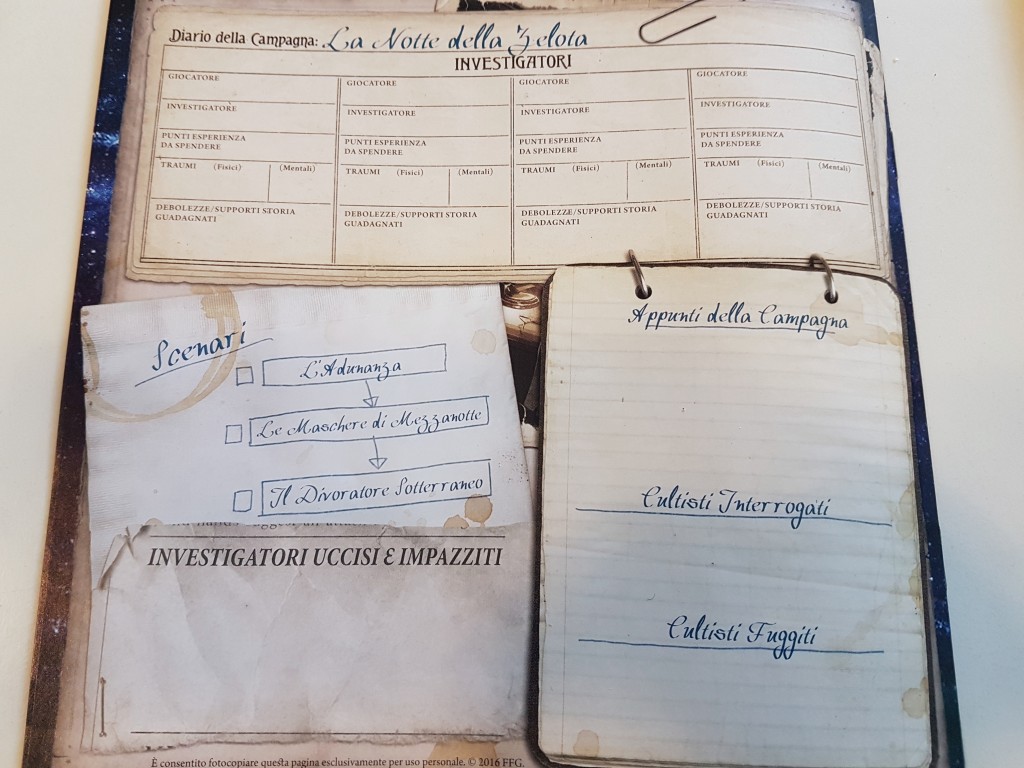 Diario della Campagna: La Notte della Zelota
INVESTIGATORI
GIOCATORE
INVESTIGATORE
PUNTI ESPERIENZA
DA SPENDERE
TRAUMI (Fisici) (Mentali)
DEBOLEZZE/SUPPORTI STORIA
GUADAGNATI
GIOCATORE
INVESTIGATORE
PUNTI ESPERIENZA
DA SPENDERE
TRAUMI (Fisici) (Mentali)
DEBOLEZZE/SUPPORTI STORIA
GUADAGNATI
GIOCATORE
INVESTIGATORE
PUNTI ESPERIENZA
DA SPENDERE
TRAUMI (Fisici) (Mentali)
DEBOLEZZE/SUPPORTI STORIA
GUADAGNATI
GIOCATORE
INVESTIGATORE
PUNTI ESPERIENZA
DA SPENDERE
TRAUMI (Fisici) (Mentali)
DEBOLEZZE/SUPPORTI STORIA
GUADAGNATI
Scenari
L'Adunanza
Le Maschere di Mezzanotte
Il Divoratore Sotterraneo
INVESTIGATORI UCCISI E IMPAZZITI
Appunti della Campagna
Cultisti Interrogati
Cultisti Fuggiti
È consentito fotocopiare questa pagina esclusivamente per uso personale. © 2016 FFG.